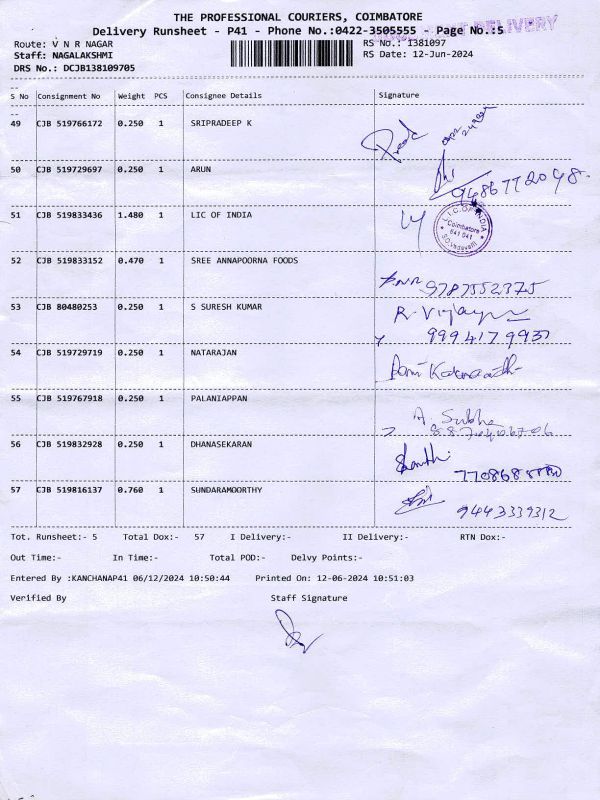 THE PROFESSIONAL COURIERS, COIMBATORE
DELIVERY
Delivery Runsheet - P41 - Phone No.:0422-3505555 - Page No.:5
Route: V N R NAGAR
RS No.: I381097
Staff: NAGALAKSHMI
RS Date: 12-Jun-2024
DRS No.: DCJB138109705
S No Consignment No Weight PCS Consignee Details Signature
49 CJB 519766172 0.250 1 SRIPRADEEP K
50 CJB 519729697 0.250 1 ARUN
9486772048
51 CJB 519833436 1.480 1 LIC OF INDIA
L.I.C. OF INDIA
Coimbatore
641 041
S.O. Vadavalli
52 CJB 519833152 0.470 1 SREE ANNAPOORNA FOODS
9787552375
53 CJB 80480253 0.250 1 S SURESH KUMAR
R. Vijaya
9994179937
54 CJB 519729719 0.250 1 NATARAJAN
55 CJB 519767918 0.250 1 PALANIAPPAN
A. Subha
56 CJB 519832928 0.250 1 DHANASEKARAN
Shanthi
57 CJB 519816137 0.760 1 SUNDARAMOORTHY
9443339312
Tot. Runsheet:- 5 Total Dox:- 57 I Delivery:- II Delivery:- RTN Dox:-
Out Time:- In Time:- Total POD:- Delvy Points:-
Entered By :KANCHANAP41 06/12/2024 10:50:44 Printed On: 12-06-2024 10:51:03
Verified By Staff Signature